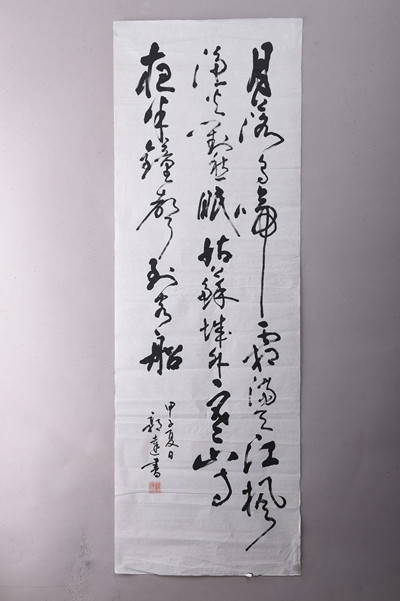 月落乌啼霜满天江枫
渔火对愁眠姑苏城外寒山寺
夜半钟声到客船
甲子夏日
郭達书